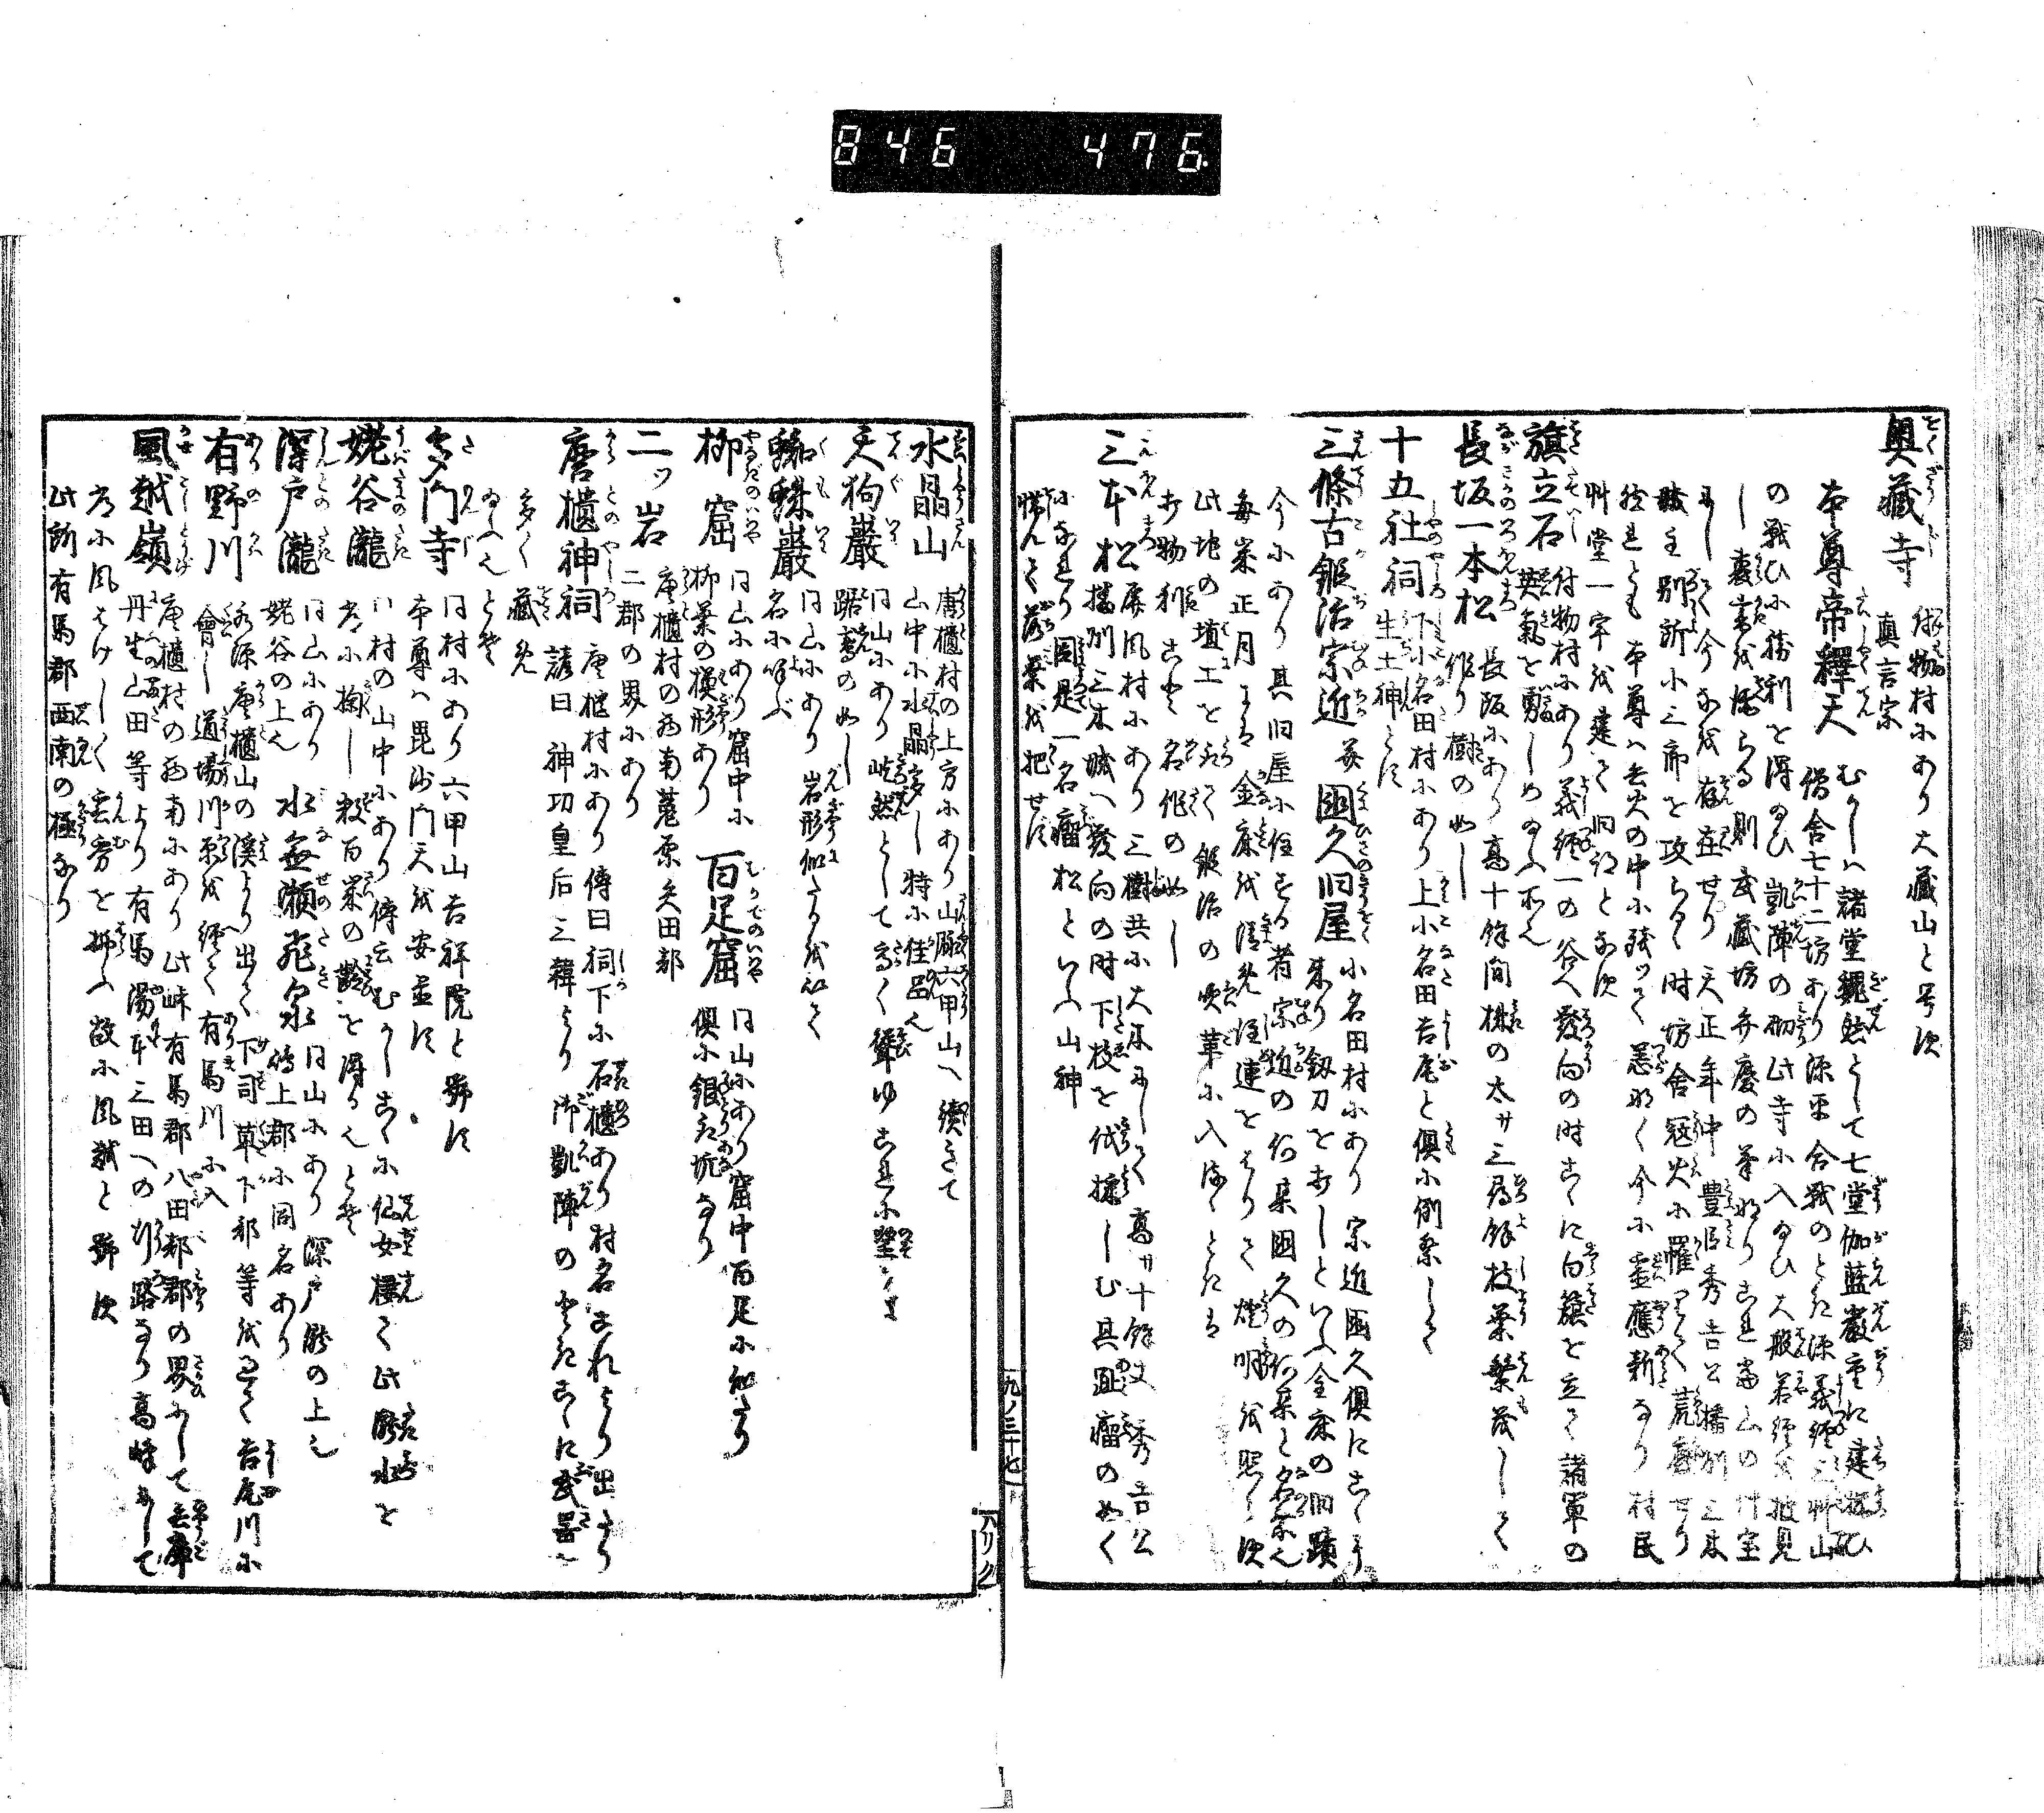 846 476
奥藏寺 付物村にあり大藏山と号す
真言宗
本尊帝釋天 むかしハ諸堂巍然として七堂伽藍厳重に建並ひ
僧舎七十二坊あり源平合戦のとき源義經三艸山
の戦ひに勝利を得給ひ凱陣の砌此寺に入給ひ大般若經を披見
し裏書を添らる則武藏坊弁慶の筆なりこれ當山の什宝
にして今なを存在せり天正年中豊臣秀吉公播州三木
城主別所小三郎を攻らるゝ時坊舎冦火に罹りて荒廢せり
然れとも本尊ハ兵火の中に残つて恙なく今に霊應新なり村民
艸堂一宇を建て旧号とす
旗立石 付物村にあり義經一の谷へ發向の時こゝに白籏を立て諸軍の
英氣を勇しめ給ふ所也
長坂一本松 長阪にあり高十餘間株の太サ三尋餘枝葉繁茂しして
作り樹の如し
十五社祠 下小名田村にあり上小名田吉尾と倶に例祭して
生土神とす
三條古鍛冶宗近 并國久旧屋 小名田村にあり宗近國久倶にこゝに
来り釼刀を打しといふ全床の旧蹟
今にあり其旧屋に住する者宗近の何某國久の何某と名乗也
毎歳正月には金床を清免注連をはりて燈明を照らす
此地の埴土を取て鍛冶の吹革に入ぬるときは
打物利こと名作の如し
三本松 屏風村にあり三樹共に大木にして高サ十餘丈秀吉公
播州三木城へ發向の時下枝を伐採しむ其迹瘤のめく
になれり因是一名瘤松といふ山神
怖んて落葉を把せす
九ノ三十七
水晶山 唐櫃村の上方にあり山脈六甲山へ續きて
山中に水晶多し特に佳品也
天狗巖 同山にあり屹然として高く聳ゆこれに望めは
踞鳶の如し
蜘蛛巖 同山にあり岩形似たるを以て
名に呼ぶ
柳窟 同山にあり窟中に
柳葉の模形あり
百足窟 同山にあり窟中百足に似たり
倶に銀取坑なり
二ッ岩 唐櫃村の西南菟原矢田部
二郡の界にあり
唐櫃神祠 唐櫃村にあり傳曰祠下に石櫃あり村名これより出たり
諺曰神功皇后三韓より御凱陣のときこゝに武器を
多く藏免
給へりとそ
多門寺 同村にあり六甲山吉祥院と號す
本尊ハ毘沙門天を安置す
姥谷瀧 同村の山中にあり傳云むかしこゝに仙女棲て此瀧水を
常に掬し数百歳の齢を得るとそ
深戸瀧 同山にあり
姥谷の上也
水無瀬飛泉 同山にあり深戸瀧の上也
嶋上郡に同名あり
有野川 水源唐櫃山の溪より出て下司草下部等を過て吉尾川に
會し道場川原を經て有馬川に入
風越嶺 唐櫃村の西南にあり此峠有馬郡八田部郡の界にして兵庫
丹生山田等より有馬湯本三田への行路なり高峰にして
常に風はけしく雲雰を拂ふ故に風越と號す
此所有馬郡西南の極なり